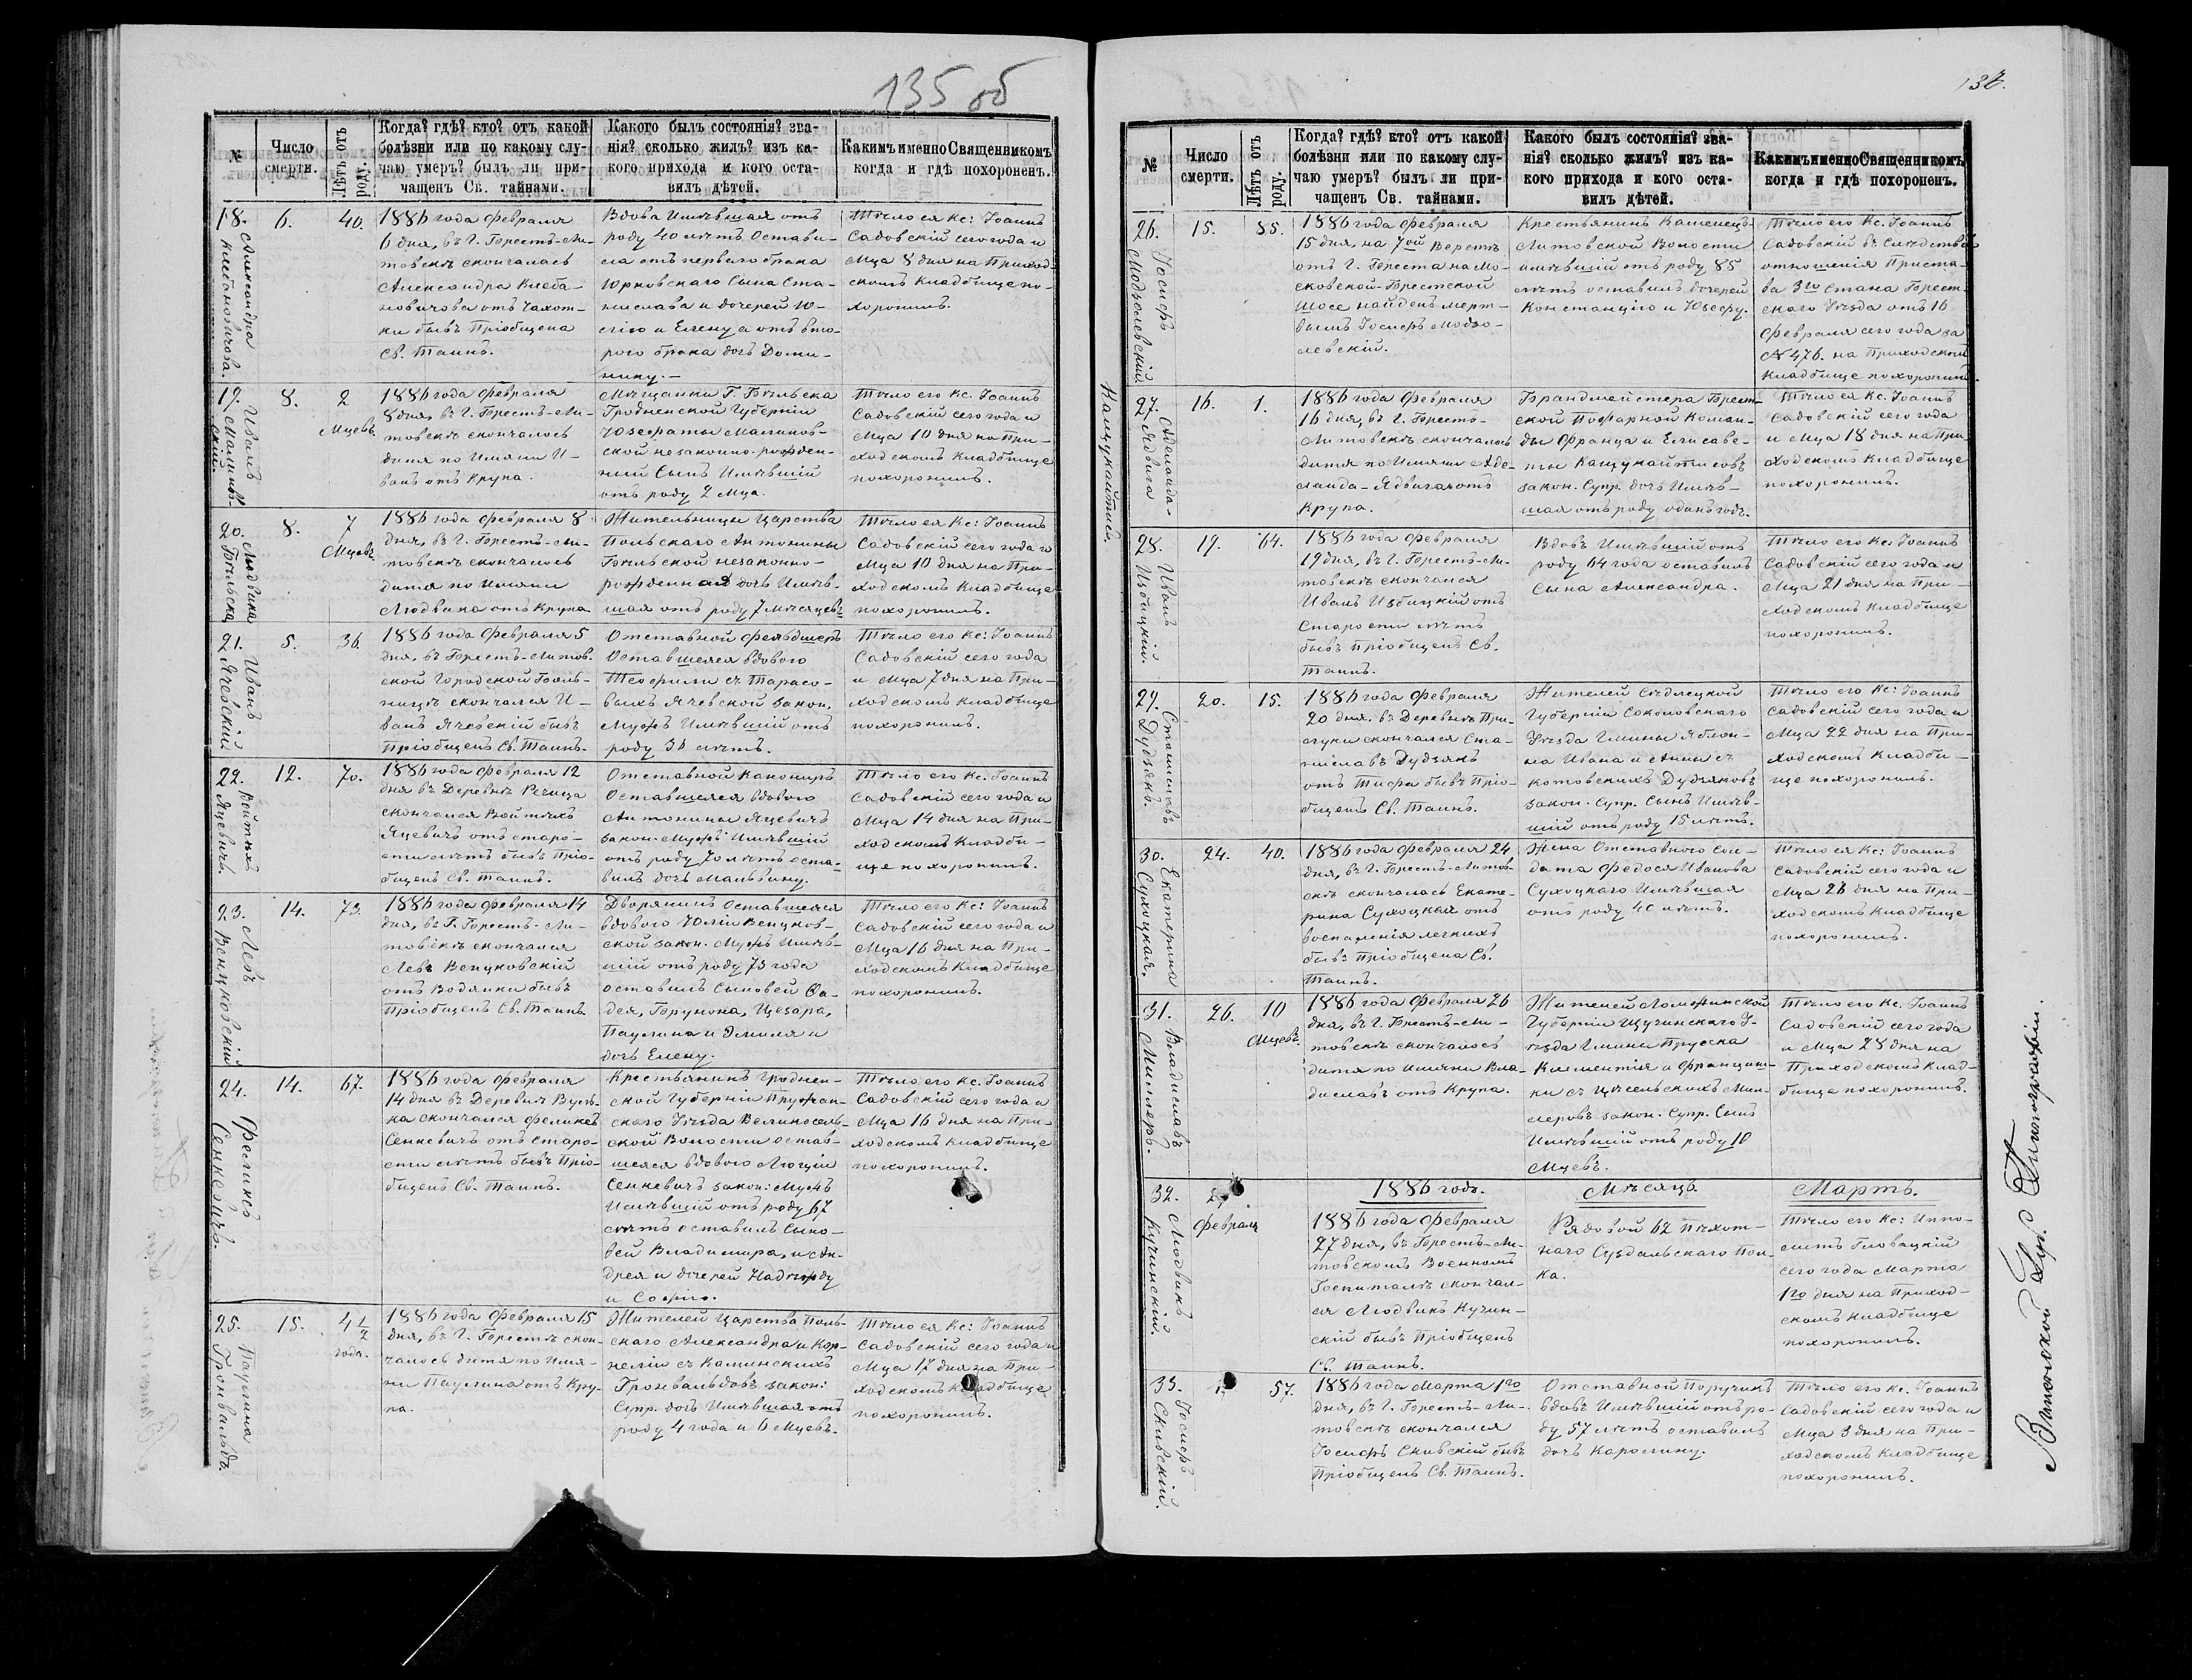 135 об
№
Число смерти.
Лѣтъ отъ роду.
Когда? гдѣ? кто? отъ какой болѣзни или по какому случаю умеръ? былъ ли причащенъ Св. тайнами.
Какого былъ состоянія? званія? сколько жилъ? изъ какого прихода и кого оставилъ дѣтей.
Какимъ именно Священникомъ когда и гдѣ похороненъ.
18.
Александра
Клебановичова.
6.
40.
1886 года Февраля
6 дня, въ Г. Брестъ-Ли-
товскѣ скончалась
Александра Клеба-
новичова отъ Чахот-
ки бывъ Пріобщена
Св. Таинъ.
Вдова Имѣвшая отъ
роду 40 лѣтъ Остави-
ла отъ перваго брака
Юрковскаго Сына Ста-
нислава и дочерей Ю-
лію и Елену, а отъ вто-
рого брака дочь Доми-
нику.—
Тѣло ея Кс: Іоаннъ
Садовскій сего года и
Мца 8 дня на Приход-
скомъ Кладбище по-
хоронилъ.
19.
Иванъ
Малинов-
скій.
8.
2
Мцевъ
1886 года Февраля
8 дня, въ Г. Брестъ-Ли-
товскѣ скончалось
дитя по Имяни И-
ванъ отъ Крупа.
Мѣщанки Г. Бѣльска
Гродненской Губерніи
Юзефаты Малинов-
ской незаконно-рожден-
ный Сынъ Имѣвшій
отъ роду 2 Мца.
Тѣло его Кс. Іоаннъ
Садовскій сего года и
Мца 10 дня на При-
ходскомъ Кладбище
похоронилъ.
20.
Людвика
Бѣльска
8.
7
Мцевъ
1886 года Февраля 8
дня, въ Г. Брестъ-Ли-
товскѣ скончалось
дитя по Имяни
Людвика отъ Крупа
Жительницы Царства
Польскаго Антонины
Бѣльской незаконно-
рожденная дочь Имѣв-
шая отъ роду 7 мѣсяцевъ
Тѣло ея Кс: Іоаннъ
Садовскій сего года и
Мца 10 дня на При-
ходскомъ Кладбище
похоронилъ.
21.
Иванъ
Ячевскій
5.
36.
1886 года Февраля 5
дня, въ Брестъ-Литов-
ской Городской Боль-
ницѣ скончался И-
ванъ Ячевскій бывъ
Пріобщенъ Св. Таинъ.
Отставной Фельдшеръ
Оставшейся вдового
Теофили съ Тарасо-
выхъ Ячевской закон.
Мужъ Имѣвшій отъ
роду 36 лѣтъ.
Тѣло его Кс: Іоаннъ
Садовскій сего года
и Мца 7 дня на При-
ходскомъ Кладбище
похоронилъ.
22.
Войтѣхъ
Яцевичъ.
12.
70.
1886 года Февраля 12
дня въ Деревнѣ Речица
скончался Войтѣхъ
Яцевичъ отъ старо-
сти лѣтъ бывъ Прі-
общенъ Св. Таинъ.
Отставной Канониръ
Оставшейся вдового
Антонины Яцевичъ
закон: Мужъ Имѣвшій
отъ роду 70 лѣтъ оста-
вилъ дочь Мальвину.
Тѣло его Кс. Іоаннъ
Садовскій сего года и
Мца 14 дня на При-
ходскомъ Кладби-
ще похоронилъ.
23.
Левъ
Венцковскій
14.
73.
1886 года Февраля 14
дня, въ Г. Брестъ-Ли-
товскѣ скончался
Левъ Венцковскій
отъ Водянки бывъ
Пріобщенъ Св. Таинъ
Дворянинъ Оставшейся
вдового Юліи Венцков-
ской закон. Мужъ Имѣв-
шій отъ роду 73 года
оставилъ Сыновей Фа-
дея, Брунона, Цезара,
Паулина и Эмиля и
дочь Елену.
Тѣло его Кс: Іоаннъ
Садовскій сего года и
Мца 16 дня на При-
ходскомъ Кладбище
похоронилъ.
24.
Феликсъ
Сенкевичъ.
14.
67.
1886 года Февраля
14 дня въ Деревнѣ Вуль-
ка скончался Феликсъ
Сенкевичъ отъ старо-
сти лѣтъ бывъ Прі-
общенъ Св. Таинъ.
Крестьянинъ Гроднен-
ской Губерніи Пружан-
скаго Уѣзда Великосель-
ской Волости остав-
шейся вдового Люціи
Сенкевичъ закон: Мужъ
Имѣвшій отъ роду 67
лѣтъ оставилъ Сыно-
вей Владимира, и Ан-
дрея и дочерей Надежду
и Софію.
Тѣло его Кс. Іоаннъ
Садовскій сего года и
Мца 16 дня на При-
ходскомъ Кладбище
похоронилъ.
25.
Паулина
Гронвальдъ.
15.
4 1/2
года.
1886 года Февраля 15
дня, въ Г. Брестѣ скон-
чалось дитя по Имя-
ни Паулина отъ Кру-
па.
Жителей Царства Поль-
скаго Александра и Кор-
неліи съ Каминскихъ
Гронвальдовъ закон:
Супр. дочь Имѣвшая отъ
роду 4 года и 6 Мцевъ.
Тѣло ея Кс: Іоаннъ
Садовскій сего года и
Мца 17 дня на При-
ходскомъ Кладбище
похоронилъ.
№
Число смерти.
Лѣтъ отъ роду.
Когда? гдѣ? кто? отъ какой болѣзни или по какому случаю умеръ? былъ ли причащенъ Св. тайнами.
Какого былъ состоянія? званія? сколько жилъ? изъ какого прихода и кого оставилъ дѣтей.
Какимъ именно Священникомъ когда и гдѣ похороненъ.
26.
Іосифъ
Модзолевскій
15.
85.
1886 года Февраля
15 дня, на 7ой Верстѣ
отъ Г. Бреста на Мо-
сковской-Брестской
Шосе найденъ мерт-
вымъ Іосифъ Модзо-
левскій.
Крестьянинъ Каменецъ-
Литовской Волости
имѣвшій отъ роду 85
лѣтъ оставилъ дочерей
Констанцію и Юзефу.
Тѣло его Кс. Іоаннъ
Садовскій въ слѣдствіе
отношенія Приста-
ва 3го Стана Брест-
скаго Уѣзда отъ 16
Февраля сего года за
№ 476. на Приходскомъ
Кладбище похоронилъ.
27.
Аделаида-
Ядвига
Кацукайтисъ.
16.
1.
1886 года Февраля
16 дня, въ Г. Брестъ-
Литовскѣ скончалось
дитя по Имяни Аде-
лаида-Ядвига отъ
Крупа.
Брандмейстера Брест-
ской Пожарной Коман-
ды Франца и Елисаве-
ты Кацукайтисовъ
закон. Супр. дочь Имѣв-
шая отъ роду одинъ годъ.
Тѣло ея Кс. Іоаннъ
Садовскій сего года
и Мца 18 дня на При-
ходскомъ Кладбище
похоронилъ.
28.
Иванъ
Избицкій.
19.
64.
1886 года Февраля
19 дня, въ Г. Брестъ-Ли-
товскѣ скончался
Иванъ Избицкій отъ
Старости лѣтъ
бывъ Пріобщенъ Св.
Таинъ.
Вдовъ Имѣвшій отъ
роду 64 года оставилъ
Сына Александра.
Тѣло его Кс: Іоаннъ
Садовскій сего года и
Мца 21 дня на При-
ходскомъ Кладбище
похоронилъ.
29.
Станиславъ
Дудзякъ.
20.
15.
1886 года Февраля
20 дня. въ Деревнѣ При-
луки скончался Ста-
ниславъ Дудзякъ
отъ Тифа бывъ Прі-
общенъ Св. Таинъ.
Жителей Сѣдлецкой
Губерніи Соколовскаго
Уѣзда Гмины Яблон-
на Ивана и Анны съ
Котовскихъ Дудзяковъ
закон. Супр. Сынъ Имѣв-
шій отъ роду 15 лѣтъ.
Тѣло его Кс: Іоаннъ
Садовскій сего года и
Мца 22 дня на При-
ходскомъ Кладби-
ще похоронилъ.
30.
Екатерина
Сухоцкая.
24.
40.
1886 года Февраля 24
дня, въ Г. Брестъ-Литов-
скѣ скончалась Екате-
рина Сухоцкая отъ
воспаленія легкихъ
бывъ Пріобщена Св.
Таинъ.
Жена Отставного Сол-
дата Федося Иванова
Сухоцкаго Имѣвшая
отъ роду 40 лѣтъ.
Тѣло ея Кс: Іоаннъ
Садовскій сего года и
Мца 26 дня на При-
ходскомъ Кладбище
похоронилъ.
31.
Владиславъ
Миллеръ.
26.
10
Мцевъ.
1886 года Февраля 26
дня, въ Г. Брестъ-Ли-
товскѣ скончалось
дитя по имяни Вла-
диславъ отъ Крупа.
Жителей Ломжинской
Губерніи Щучинскаго У-
ѣзда Гмины Пруска
Климентія и Францишк-
ки съ Цѣсельскихъ Мил-
леровъ закон. Супр. Сынъ
Имѣвшій отъ роду 10
Мцевъ.
Тѣло его Кс. Іоаннъ
Садовскій сего года
и Мца 28 дня на
Приходскомъ Клад-
бище похоронилъ.
1886 годъ. Мѣсяцъ. Мартъ.
32.
Людвикъ
Кучинскій.
Февраля
1886 года Февраля
27 дня, въ Брестъ-Ли-
товскомъ Военномъ
Госпиталѣ скончал-
ся Людвикъ Кучин-
скій бывъ Пріобщенъ
Св. Таинъ.
Рядовой 62 пѣхот-
наго Суздальскаго Пол-
ка.
Тѣло его Кс: Иппо-
литъ Гловацкій
сего года Марта
1го дня на Приход-
скомъ Кладбище
похоронилъ.
33.
Іосифъ
Скивскій.
57.
1886 года Марта 1го
дня, въ Г. Брестъ-Ли-
товскѣ скончался
Іосифъ Скивскій бывъ
Пріобщенъ Св. Таинъ.
Отставной Поручикъ
вдовъ Имѣвшій отъ ро-
ду 57 лѣтъ оставилъ
дочь Каролину.
Тѣло его Кс. Іоаннъ
Садовскій сего года и
Мца 3 дня на При-
ходскомъ Кладбище
похоронилъ.